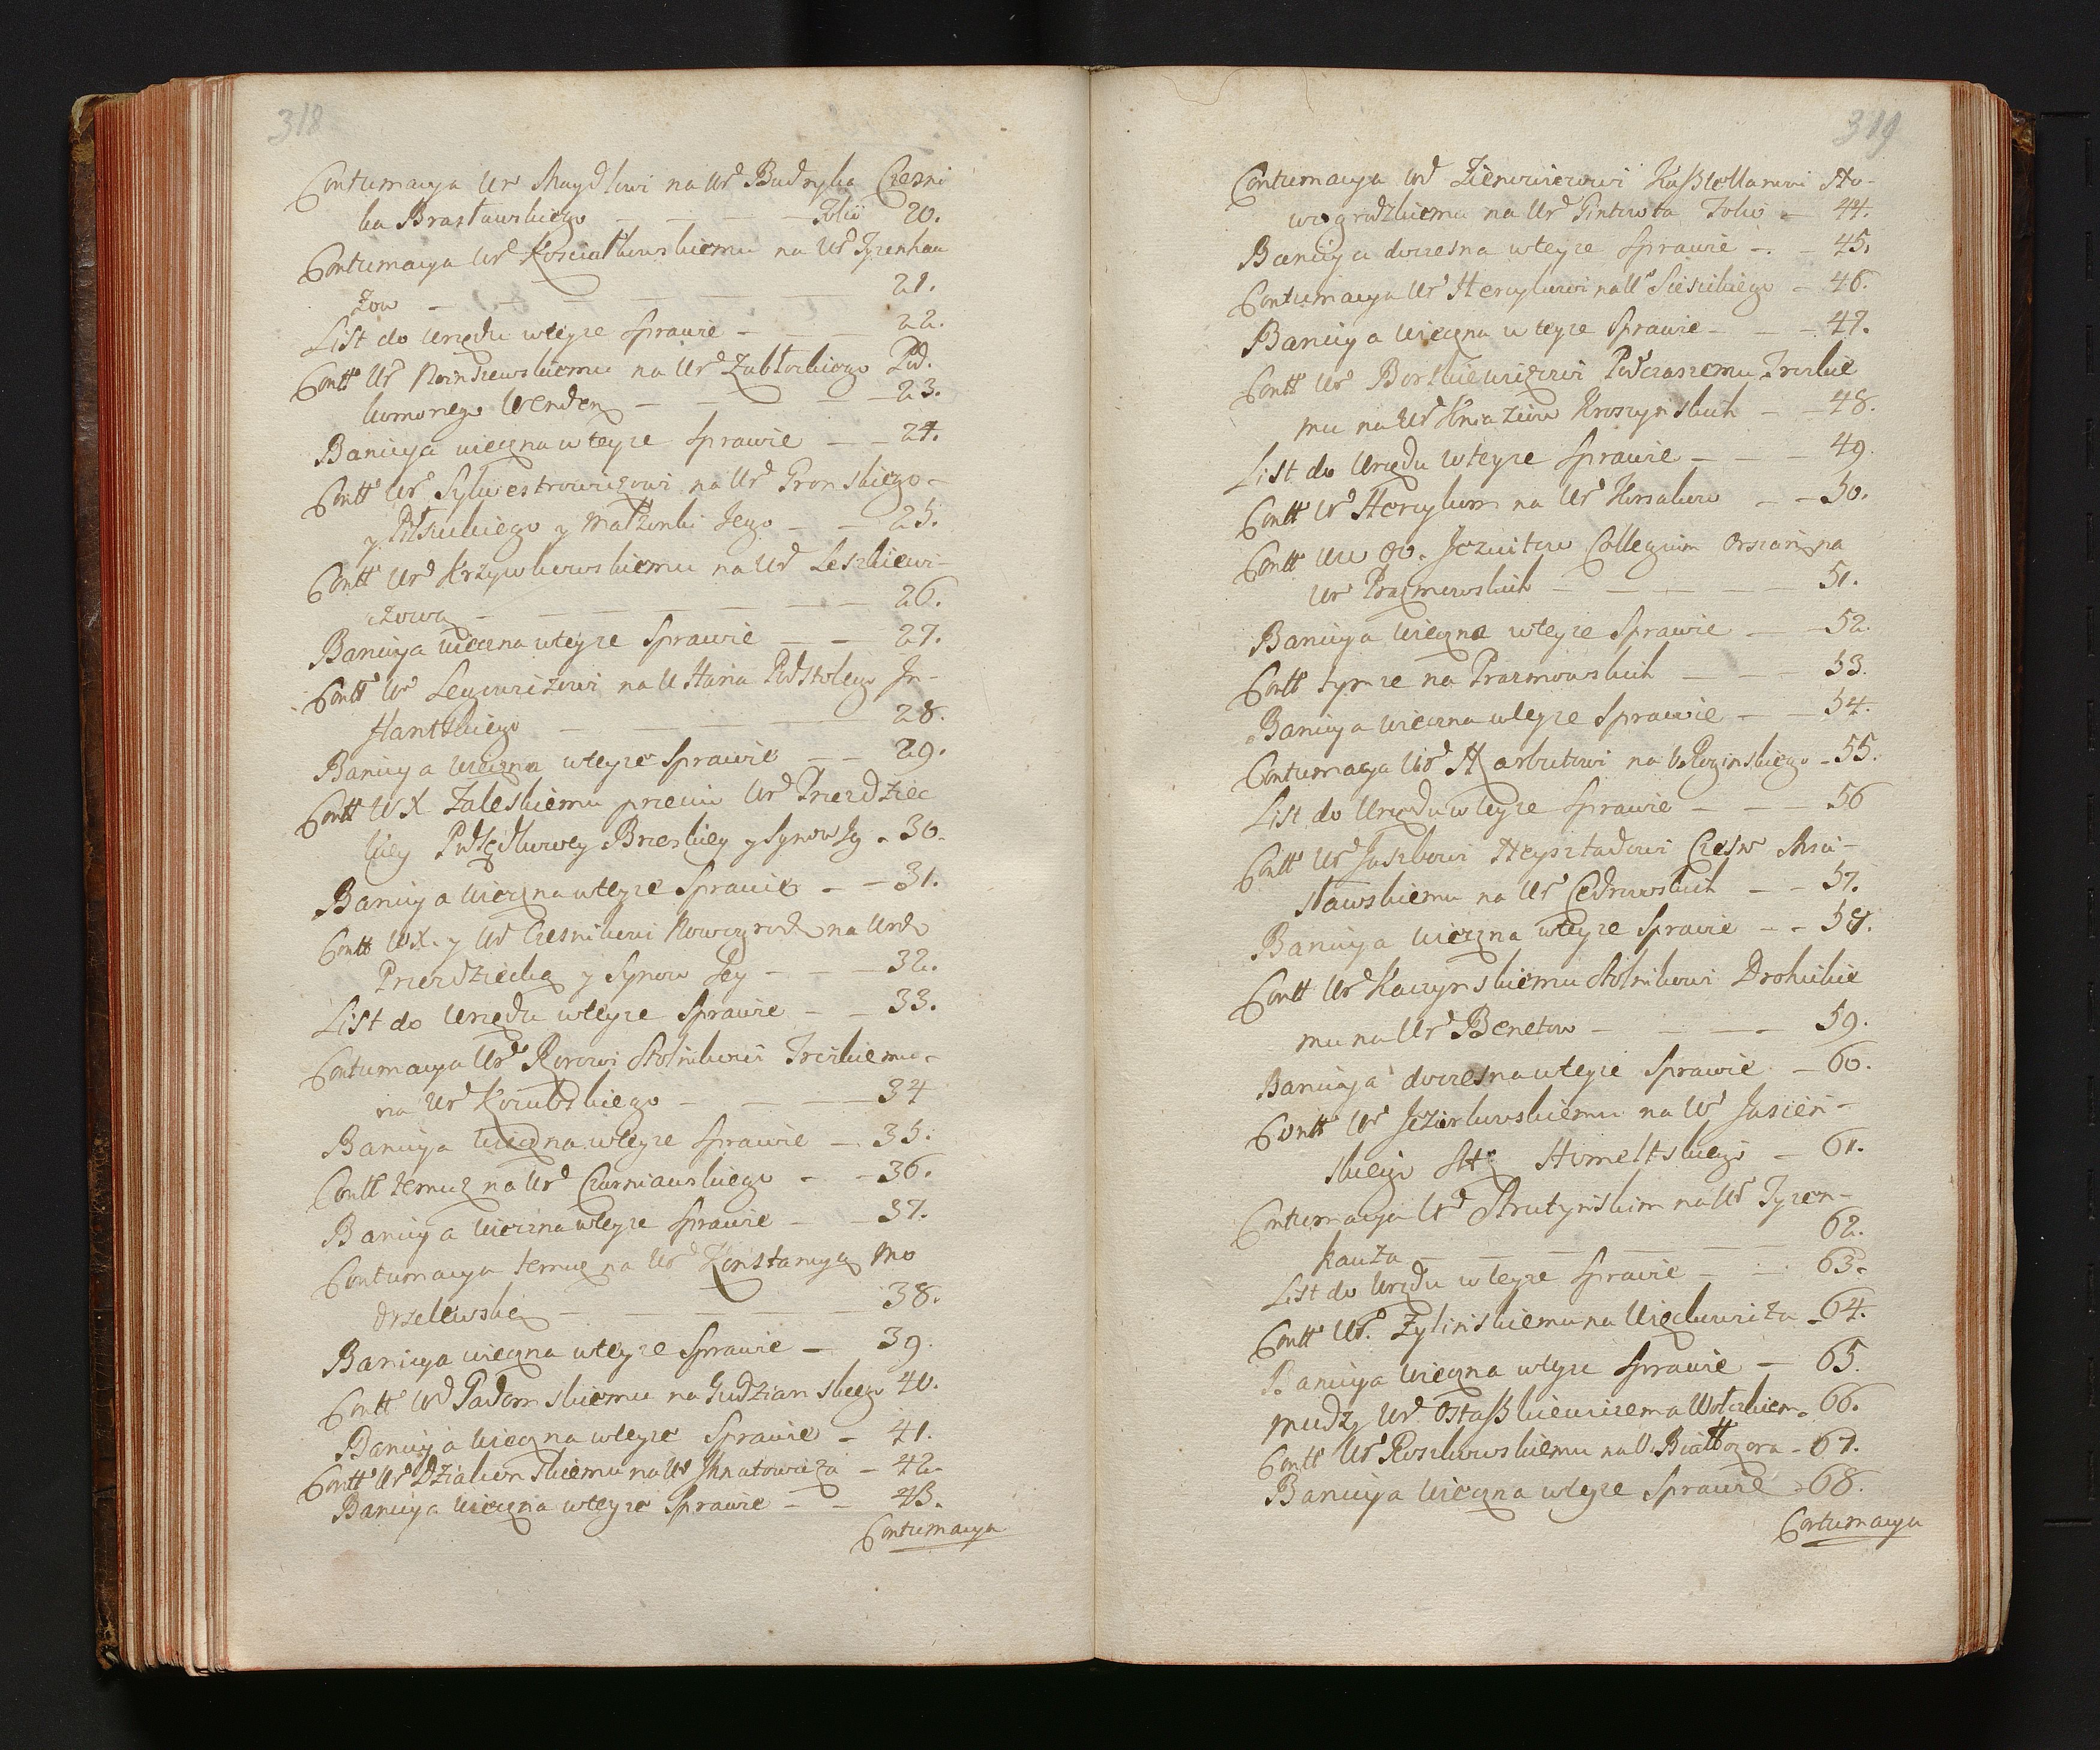 318
Contumacya Ur Maydlowi na Urd Budryka Czesni
ka Brasławskiego — — — Folio 20.
Contumacya Urd Kosciałkowskiemu na Urd Tyzenhau
zow — — — 21.
List do Urzędu wteyze Sprawie — — 22.
Contt Ur na Urd Zabłockiego Pod.
komorzego Wenden — — — 23.
Banicya wieczna w teyze Sprawie — — 24.
Contt Urd Sylwestrowiczowi na Urd Pronskiego
y Piłsuckiego y Małzonki Jego — — 25.
Contt Urd Krzywkowskiemu na Urd Leszkiewi-
czową — — — 26.
Banicya wieczna wteyze Sprawie — — 27.
Contt Ur na U Hana Podstolego In-
flantskiego — — 28.
Banicya wieczna wteyze Sprawie — — 29.
Contt WX Zaleskiemu przeciw Urd Przezdziec
kiey Podsędkowey Brzeskiey y Synow Jey - 30.
Banicya wieczna wteyze Sprawie — — 31.
Contt WX. y Urd Czesnikowi Nowogrod na Urd
Przezdziecką y Synow Jey — — — 32.
List do Urzędu wteyze Sprawie — — 33.
Contumacya Urd Rorowi Stolnikowi Trockiemu
na Urd — — — 34
Banicya wieczna wteyze Sprawie — 35.
Contt temuz na Urd Czarniawskiego — — 36.
Banicya wieczna wteyze Sprawie — — 37.
Contumacya temuz na Urd Konstancyą Mo
drzelewską — — — 38.
Banicya wieczna wteyze Sprawie — 39.
Contt Urd Padarskiemu na Gudzianskiego 40.
Banicya wieczna wteyze Sprawie — 41.
Contt Ur na Ur Ihnatowicza — 42.
Banicya wieczna wteyze Sprawie — — 43.
Contumacya
319
Contumacya Urd Zienowiczowi Kasztellanowi No-
wogrodzkiemu na Urd Pintowta Folio — 44.
Banicya doczesna wteyze Sprawie — — 45.
Contumacya Ur Hercykowi na U Siesickiego — 46.
Banicya wieczna w teyze Sprawie — — — 47.
Contt Ur Bortkiewiczowi Podczaszemu Trockie
mu na Urd Kniaziow Kroszynskich — — 48.
List do Urzędu wteyze Sprawie — — — 49.
Contt Ur Hercykom na Ur Korsakow — — 50.
Contt Ww OO. Jezuitow Collegium na
Ur Prazmowskich — — — — 51.
Banicya wieczna wteyze Sprawie — — 52.
Contt tymze na Prazmowskich — — — 53.
Banicya wieczna wteyze Sprawie — — 54.
Contumacya Urd Narbutowi na U Roginskiego - 55.
List do Urzędu w teyze Sprawie — — — 56
Contt Urd Jaszkowi Heysztadowi Czesn Mści-
sławskiemu na Ur Cedrowskich — — 57.
Banicya wieczna wteyze Sprawie — — 58.
Contt Urd Kaczynskiemu Stolnikowi Drohickie
mu na Urd Benetow — — — — 59.
Banicya doczesna wteyze Sprawie — 60.
Contt Ur Jeziorkowskiemu na Ur Jasień-
skiego Homeltskiego — 61.
Contumacya Urd Strutynskim na Ur Tyzen-
hauza — — — 62.
List do Urzędu w teyze Sprawie — — 63.
Contt Ur. Zylinskiemu na Więckowicza — 64.
Banicya wieczna wteyze Sprawie — 65.
miedzy Ur. Ostaszkiewiczem a Wołczkiem — 66.
Contt Ur Roszkowskiemu na U. Białłozora - 67.
Banicya wieczna wteyze Sprawie - 68.
Contumacya